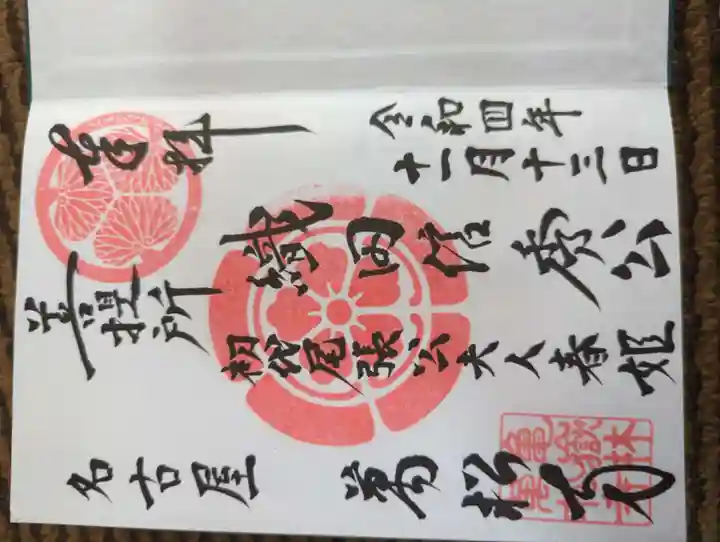 奉拝
令和四年
十一月十三日
菩提所
織田信秀公
初代尾張公夫人春姫
名古屋 萬松寺